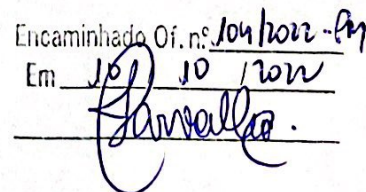 Encaminhado Of. nº 104/2022 - PM
Em 10 / 10 / 2022
Carvalho.